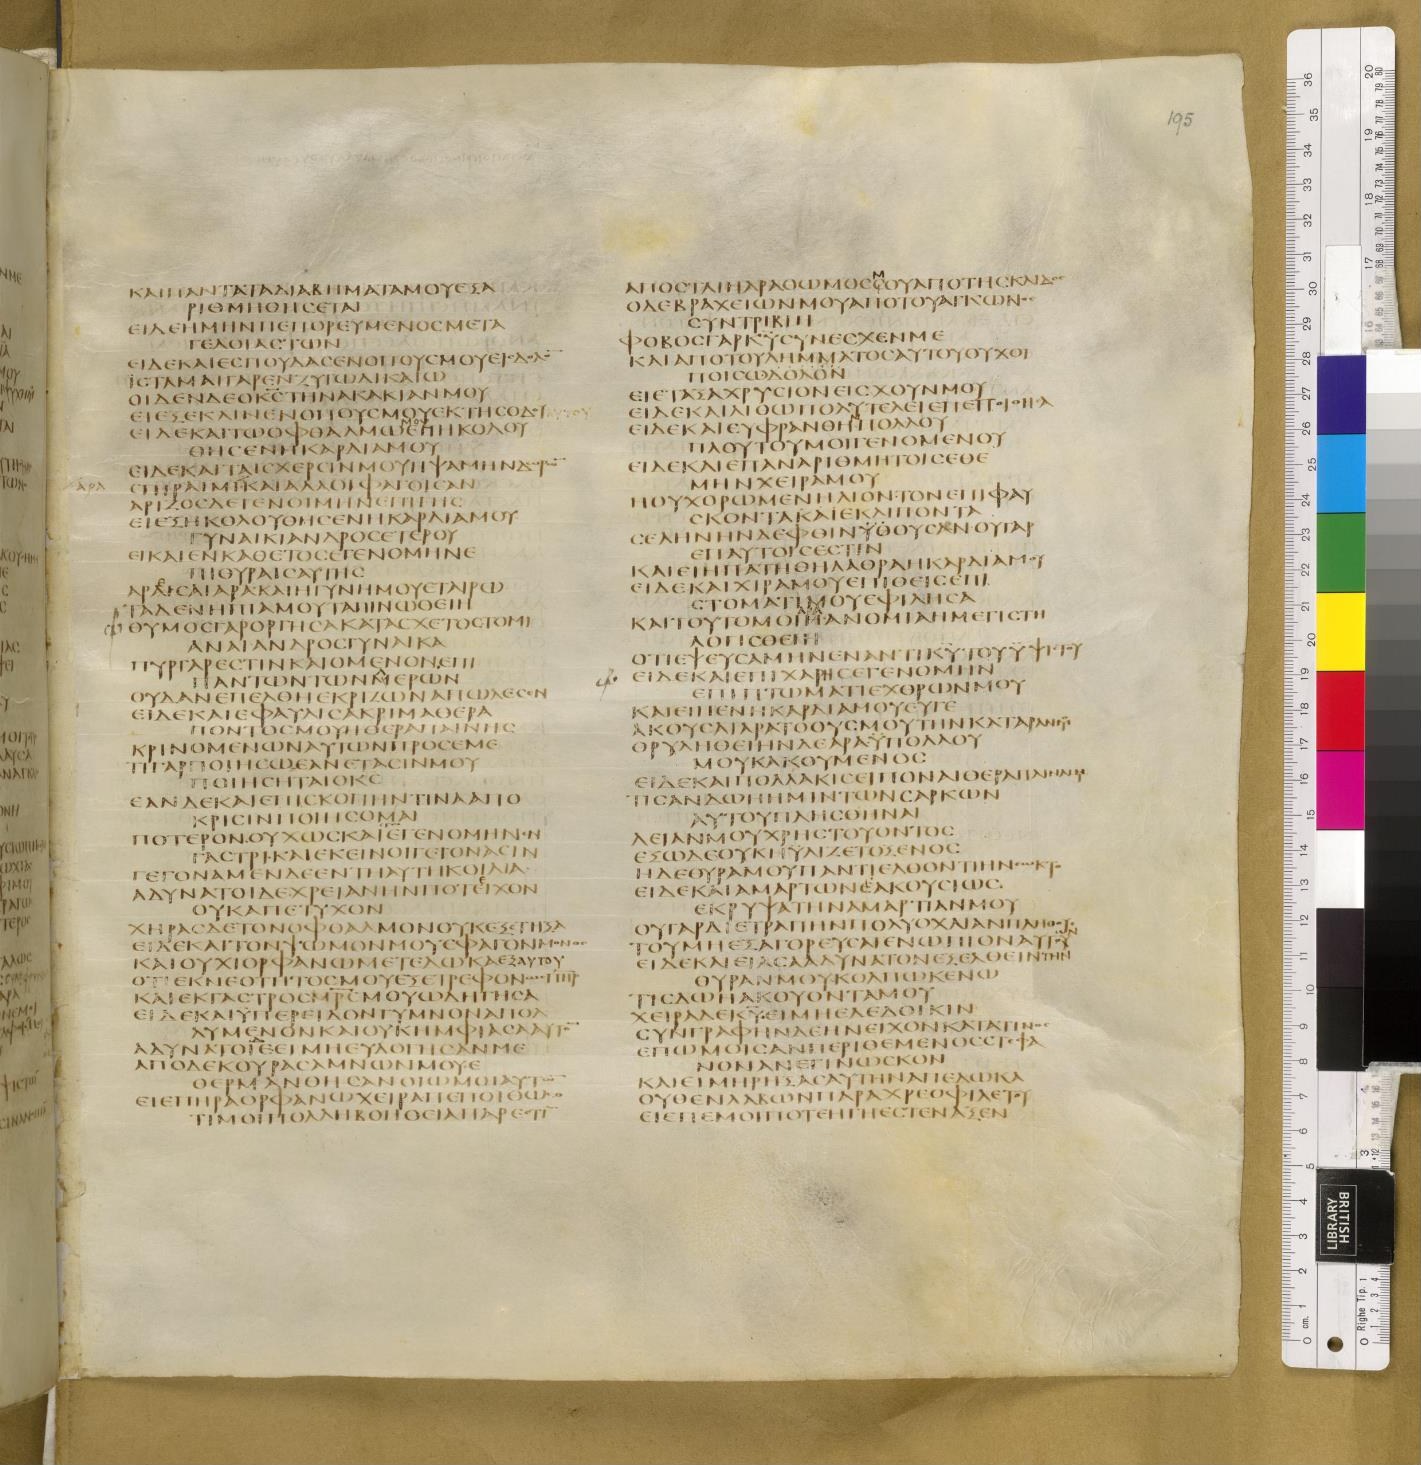 195
ΚΑΙΠΑΝΤΑΤΑΔΙΑΒΗΜΑΤΑΜΟΥΕΞΑ
ΡΙΘΜΗΘΗϹΕΤΑΙ
ΕΙΔΕΗΜΗΝΠΕΠΟΡΕΥΜΕΝΟϹΜΕΤΑ
ΓΕΛΟΙΑϹΤΩΝ
ΕΙΔΕΚΑΙΕϹΠΟΥΔΑϹΕΝΟΠΟΥϹΜΟΥΕΙϹΔΟΛΟ
ΪϹΤΑΜΑΙΓΑΡΕΝΖΥΓΩΔΙΚΑΙΩ
ΟΙΔΕΝΔΕΟΚϹΤΗΝΑΚΑΚΙΑΝΜΟΥ
ΕΙΕΞΕΚΛΙΝΕΝΟΠΟΥϹΜΟΥΕΚΤΗϹΟΔΟΥΑΥΤΟΥ
ΕΙΔΕΚΑΙΤΩΟΦΘΑΛΜΩΜΟΥΕΠΗΚΟΛΟΥ
ΘΗϹΕΝΗΚΑΡΔΙΑΜΟΥ
ΕΙΔΕΚΑΙΤΑΙϹΧΕΡϹΙΝΜΟΥΗΨΑΜΗΝΔΩΡΩ
ΑΡΑ
ϹΠΙΡΑΙΜΙΚΑΙΑΛΛΟΙΦΑΓΟΙϹΑΝ
ΑΡΙΖΟϹΔΕΓΕΝΟΙΜΗΝΕΠΙΓΗϹ
ΕΙΕΞΗΚΟΛΟΥΘΗϹΕΝΗΚΑΡΔΙΑΜΟΥ
ΓΥΝΑΙΚΙΑΝΔΡΟϹΕΤΕΡΟΥ
ΕΙΚΑΙΕΝΚΑΘΕΤΟϹΕΓΕΝΟΜΗΝΕ
ΠΙΘΥΡΑΙϹΑΥΤΗϹ
ΑΡΕϹΑΙΑΡΑΚΑΙΗΓΥΝΗΜΟΥΕΤΑΙΡΩ
ΤΑΔΕΝΗΠΙΑΜΟΥΤΑΠΙΝΩΘΕΙΗ
ΘΥΜΟϹΓΑΡΟΡΓΗϹΑΚΑΤΑϹΧΕΤΟϹΤΟΜΙ
ΑΝΑΙΑΝΔΡΟϹΓΥΝΑΙΚΑ
ΠΥΡΓΑΡΕϹΤΙΝΚΑΙΟΜΕΝΟΝΕΠΙ
ΠΑΝΤΩΝΤΩΝΜΕΡΩΝ
ΟΥΔΑΝΕΠΕΛΘΗΕΚΡΙΖΩΝΑΠΩΛΕϹΕΝ
ΕΙΔΕΚΑΙΕΦΑΥΛΙϹΑΚΡΙΜΑΘΕΡΑ
ΠΟΝΤΟϹΜΟΥΗΘΕΡΑΠΑΙΝΗϹ
ΚΡΙΝΟΜΕΝΩΝΑΥΤΩΝΠΡΟϹΕΜΕ
ΤΙΓΑΡΠΟΙΗϹΩΕΑΝΕΤΑϹΙΝΜΟΥ
ΠΟΙΗϹΗΤΑΙΟΚϹ
ΕΑΝΔΕΚΑΙΕΠΙϹΚΟΠΗΝΤΙΝΑΑΠΟ
ΚΡΙϹΙΝΠΟΙΗϹΟΜΑΙ
ΠΟΤΕΡΟΝΟΥΧΩϹΚΑΙΕΓΕΝΟΜΗΝΕΝ
ΓΑϹΤΡΙΚΑΙΕΚΕΙΝΟΙΓΕΓΟΝΑϹΙΝ
ΓΕΓΟΝΑΜΕΝΔΕΕΝΤΗΑΥΤΗΚΟΙΛΙΑ
ΑΔΥΝΑΤΟΙΔΕΧΡΕΙΑΝΗΝΠΟΤΕΙΧΟΝ
ΟΥΚΑΠΕΤΥΧΟΝ
ΧΗΡΑϹΔΕΤΟΝΟΦΘΑΛΜΟΝΟΥΚΕΞΕΤΗΞΑ
ΕΙΔΕΚΑΙΤΟΝΨΩΜΟΝΜΟΥΕΦΑΓΟΝΜΟΝΟϹ
ΚΑΙΟΥΧΙΟΡΦΑΝΩΜΕΤΕΔΩΚΑΕΞΑΥΤΟΥ
ΟΤΙΕΚΝΕΟΤΗΤΟϹΜΟΥΕΞΕΤΡΕΦΟΝΩϹΠΗΡ
ΚΑΙΕΚΓΑϹΤΡΟϹΜΡϹΜΟΥΩΔΗΓΗϹΑ
ΕΙΔΕΚΑΙΫΠΕΡΕΙΔΟΝΓΥΜΝΟΝΑΠΟΛ
ΛΥΜΕΝΟΝΚΑΙΟΥΚΗΜΦΙΑϹΑΑΥΤΟ
ΑΔΥΝΑΤΟΙΔΕΕΙΜΗΕΥΛΟΓΗϹΑΝΜΕ
ΑΠΟΔΕΚΟΥΡΑϹΑΜΝΩΝΜΟΥΕ
ΘΕΡΜΑΝΘΗϹΑΝΟΙΩΜΟΙΑΥΤΩ
ΕΙΕΠΗΡΑΟΡΦΑΝΩΧΕΙΡΑΠΕΠΟΙΘΩϹΟ
ΤΙΜΟΙΠΟΛΛΗΒΟΗΘΕΙΑΠΑΡΕϹΤΙ
ΑΠΟϹΤΑΙΗΑΡΑΟΩΜΟϹΜΟΥΑΠΟΤΗϹΚΛΙΔΟϹ
ΟΔΕΒΡΑΧΕΙΩΝΜΟΥΑΠΟΤΟΥΑΓΚΩΝΟϹ
ϹΥΝΤΡΙΒΙΗ
ΦΟΒΟϹΓΑΡΚΥϹΥΝΕϹΧΕΝΜΕ
ΚΑΙΑΠΟΤΟΥΛΗΜΜΑΤΟϹΑΥΤΟΥΟΥΧΟΙ
ΠΟΙϹΩΔΟΛΟΝ
ΕΙΕΤΑΞΑΧΡΥϹΙΟΝΕΙϹΧΟΥΝΜΟΥ
ΕΙΔΕΚΑΙΛΙΘΩΠΟΛΥΤΕΛΕΙΕΠΕΠΟΙΘΗϹΑ
ΕΙΔΕΚΑΙΕΥΦΡΑΝΘΗΝΠΟΛΛΟΥ
ΠΛΟΥΤΟΥΜΟΙΓΕΝΟΜΕΝΟΥ
ΕΙΔΕΚΑΙΕΠΑΝΑΡΙΘΜΗΤΟΙϹΕΘΕ
ΜΗΝΧΕΙΡΑΜΟΥ
ΗΟΥΧΟΡΩΜΕΝΗΛΙΟΝΤΟΝΕΠΙΦΑΥ
ϹΚΟΝΤΑΚΑΙΕΚΛΙΠΟΝΤΑ
ϹΕΛΗΝΗΝΔΕΦΘΙΝΟΥϹΑΝΟΥΓΑΡ
ΕΠΑΥΤΟΙϹΕϹΤΙΝ
ΚΑΙΕΙΗΠΑΤΗΘΗΛΑΘΡΑΗΚΑΡΔΙΑΜΟΥ
ΕΙΔΕΚΑΙΧΙΡΑΜΟΥΕΠΙΘΕΙϹΕΠΙ
ϹΤΟΜΑΤΙΜΟΥΕΦΙΛΗϹΑ
ΚΑΙΤΟΥΤΟΜΟΙΑΡΑΑΝΟΜΙΑΗΜΕΓΙϹΤΗ
ΛΟΓΙϹΘΕΙΗ
ΟΤΙΕΨΕΥϹΑΜΗΝΕΝΑΝΤΙΚΥΤΟΥΥΨΙϹΤΟΥ
ΕΙΔΕΚΑΙΕΠΙΧΑΡΗϹΕΓΕΝΟΜΗΝ
ΕΠΙΠΤΩΜΑΤΙΕΧΘΡΩΝΜΟΥ
ΚΑΙΕΙΠΕΝΗΚΑΡΔΙΑΜΟΥΕΥΓΕ
ΑΚΟΥϹΑΙΑΡΑΤΟΟΥϹΜΟΥΤΗΝΚΑΤΑΡΑΝΜΟΥ
ΘΡΥΛΗΘΕΙΗΝΔΕΑΡΑΫΠΟΛΑΟΥ
ΜΟΥΚΑΚΟΥΜΕΝΟϹ
ΕΙΔΕΚΑΙΠΟΛΛΑΚΙϹΕΙΠΟΝΑΙΘΕΡΑΠΑΙΝΑΙΜΟΥ
ΤΙϹΑΝΔΩΗΗΜΙΝΤΩΝϹΑΡΚΩΝ
ΑΥΤΟΥΠΛΗϹΘΗΝΑΙ
ΛΕΙΑΝΜΟΥΧΡΗϹΤΟΥΟΝΤΟϹ
ΕΞΩΔΕΟΥΚΗΫΛΙΖΕΤΟΞΕΝΟϹ
ΗΔΕΘΥΡΑΜΟΥΠΑΝΤΙΕΛΘΟΝΤΙΗΝΕΩΚΤΟ
ΕΙΔΕΚΑΙΑΜΑΡΤΩΝΑΚΟΥϹΙΩϹ
ΕΚΡΥΨΑΤΗΝΑΜΑΡΤΙΑΝΜΟΥ
ΟΥΓΑΡΔΙΕΤΡΑΠΗΝΠΟΛΥΟΧΛΙΑΝΠΛΗΘΟΥϹ
ΤΟΥΜΗΕΞΑΓΟΡΕΥϹΑΙΕΝΩΠΙΟΝΑΥΤΩΝ
ΕΙΔΕΚΑΙΕΙΑϹΑΑΔΥΝΑΤΟΝΕΞΕΛΘΕΙΝΤΗΝ
ΘΥΡΑΝΜΟΥΚΟΛΠΩΚΕΝΩ
ΤΙϹΔΩΗΑΚΟΥΟΝΤΑΜΟΥ
ΧΕΙΡΑΔΕΚΥΕΙΜΗΕΔΕΔΟΙΚΙΝ
ϹΥΝΓΡΑΦΗΝΔΕΗΝΕΙΧΟΝΚΑΤΑΤΙΝΟϹ
ΕΠΩΜΟΙϹΑΝΠΕΡΙΘΕΜΕΝΟϹϹΤΕΦΑ
ΝΟΝΑΝΕΓΙΝΩϹΚΟΝ
ΚΑΙΕΙΜΗΡΗΞΑϹΑΥΤΗΝΑΠΕΔΩΚΑ
ΟΥΘΕΝΛΑΒΩΝΠΑΡΑΧΡΕΟΦΙΛΕΤΟΥ
ΕΙΕΠΕΜΟΙΠΟΤΕΗΓΗΕϹΤΕΝΑΞΕΝ
BRITISH
LIBRARY